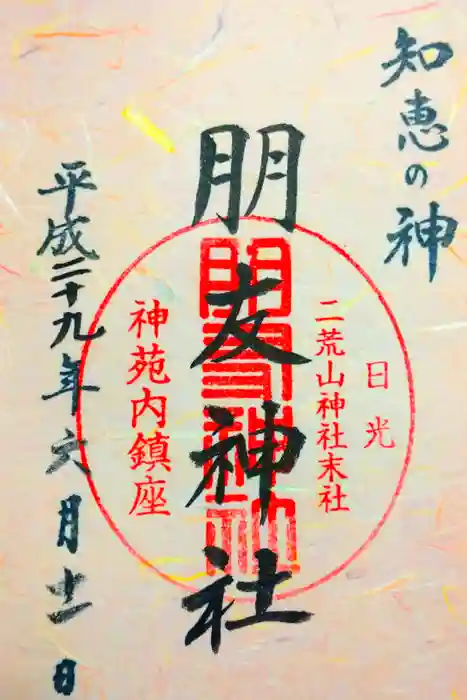 知恵の神
日光
二荒山神社末社
朋友神社
朋友神社
神苑内鎮座
平成二十九年六月十一日